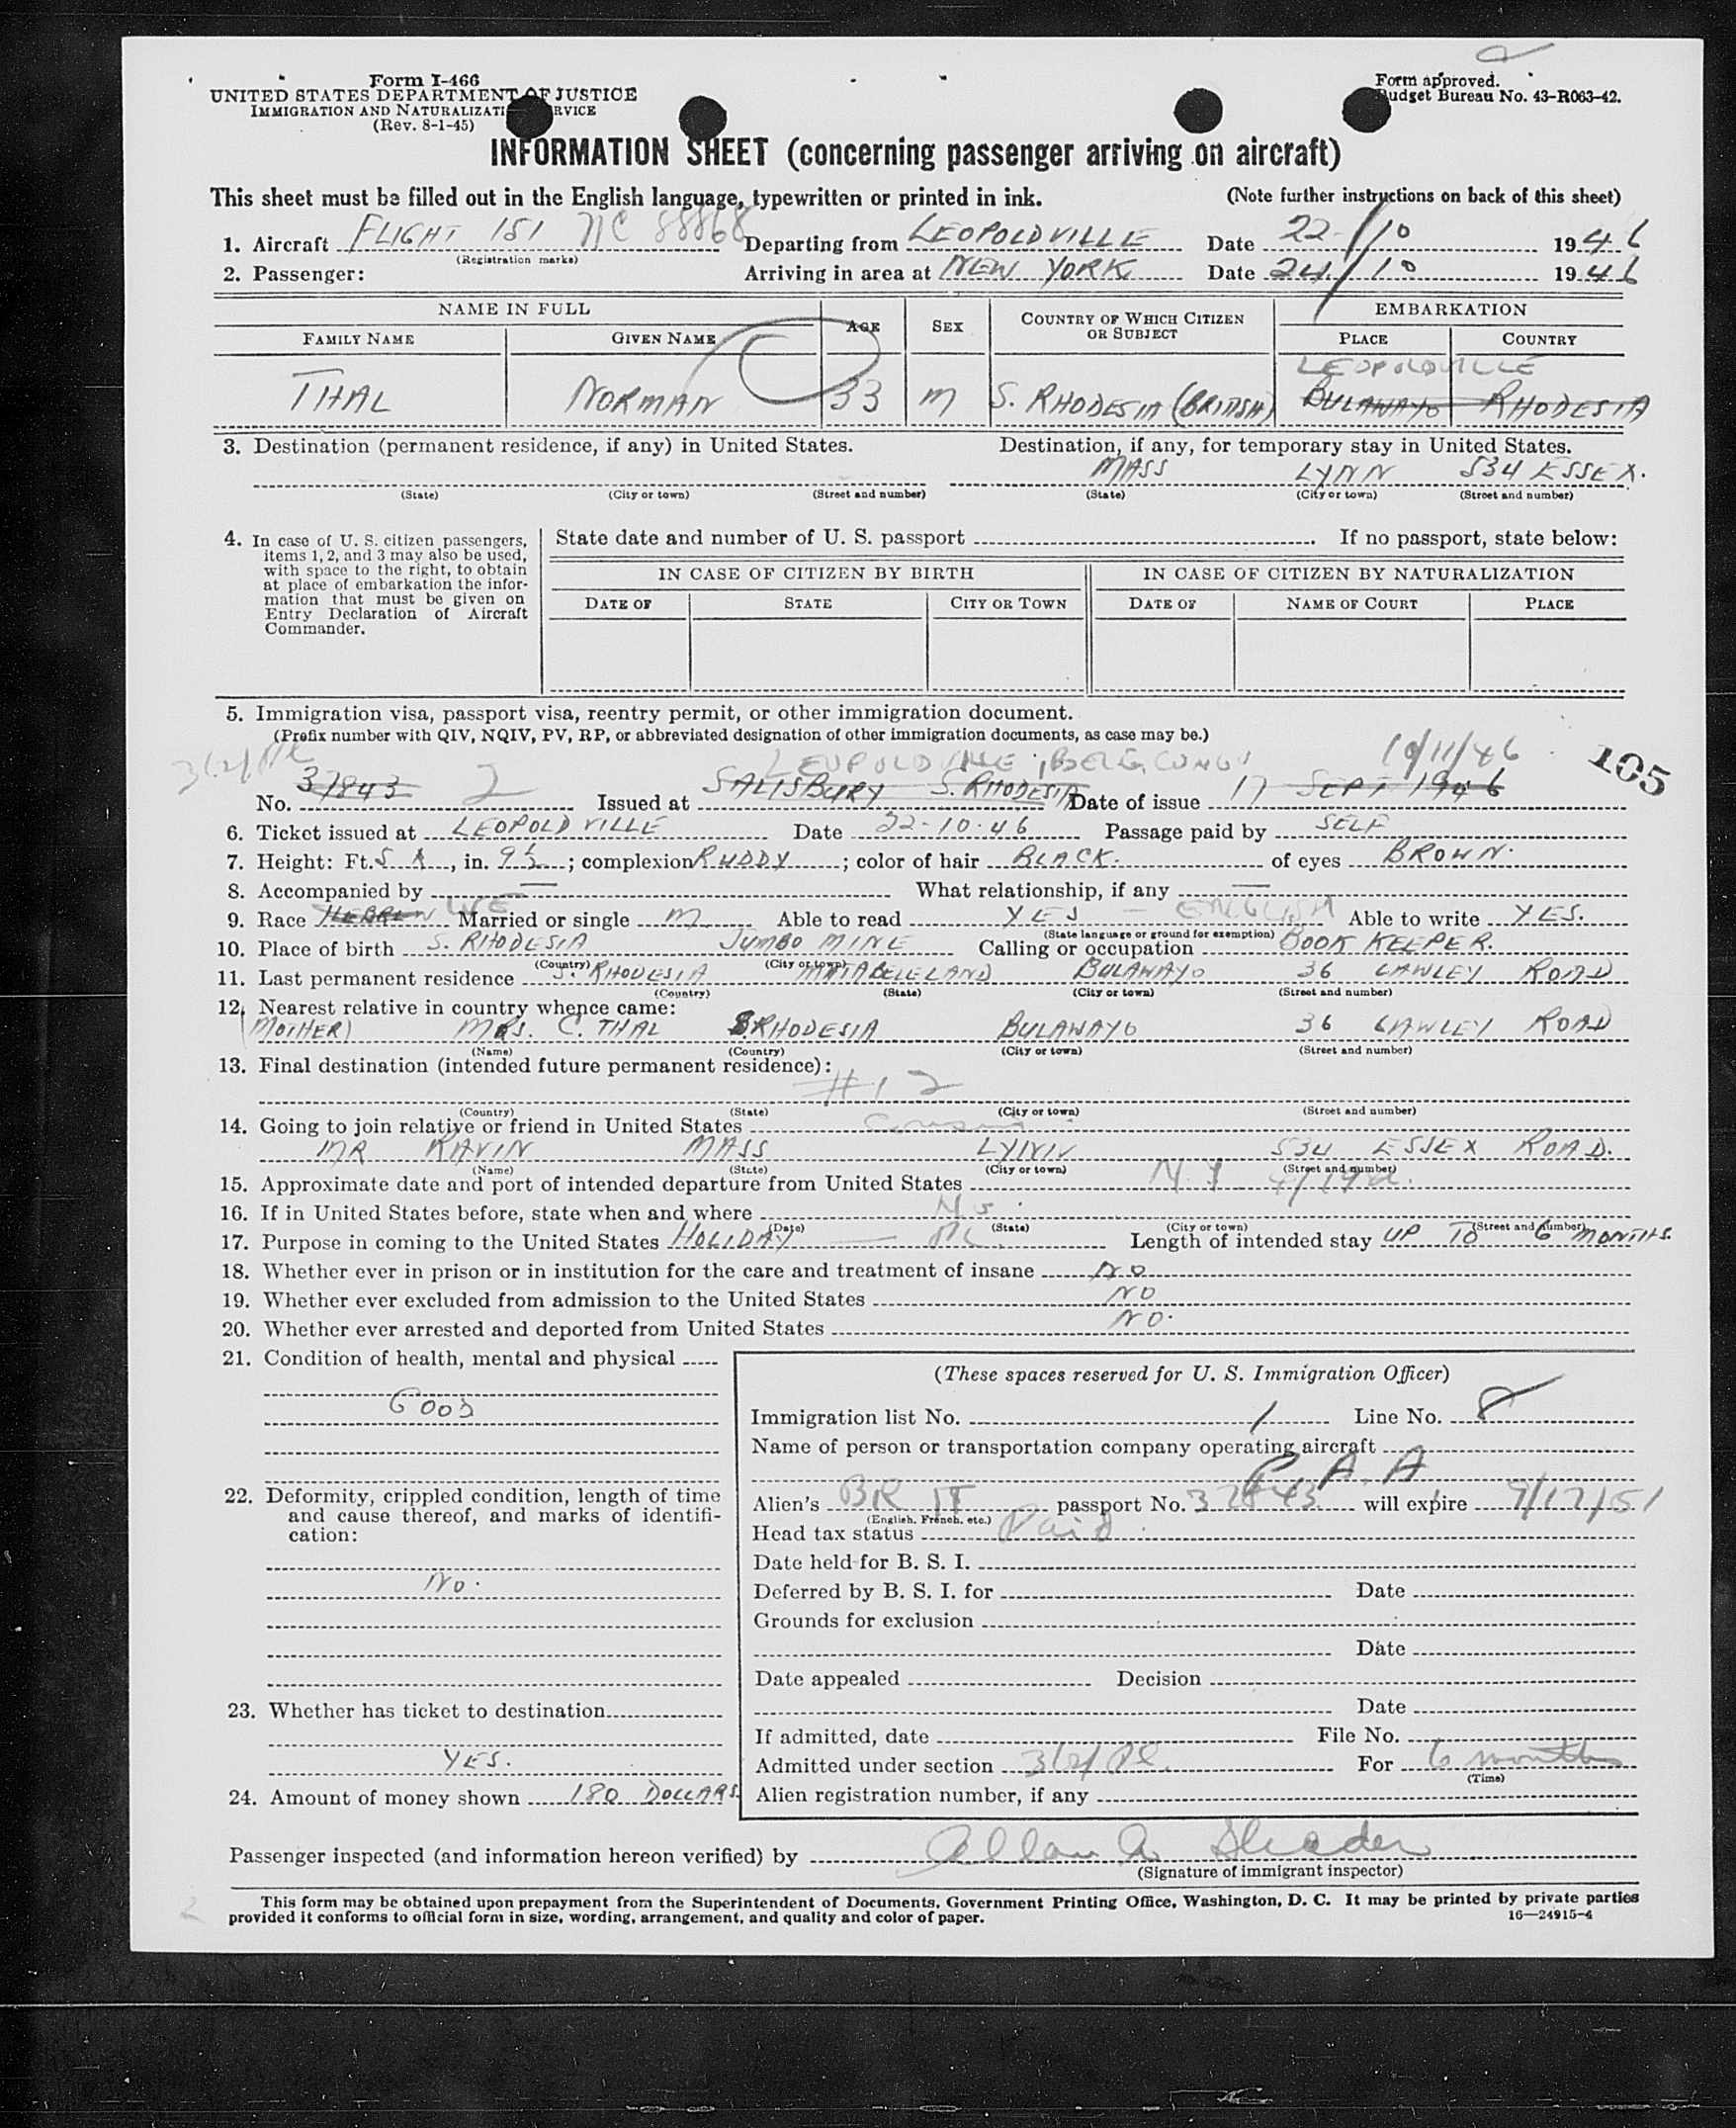 Form I-466
UNITED STATES DEPARTMENT OF JUSTICE
IMMIGRATION AND NATURALIZATI RVICE
(Rev. 8-1-45)
Form approved.
Budget Bureau No. 43-R063-42.
INFORMATION SHEET (concerning passenger arriving on aircraft)
This sheet must be filled out in the English language, typewritten or printed in ink. (Note further instructions on back of this sheet)
1. Aircraft FLIGHT 151 NC 88868 Departing from LEOPOLDVILLE Date 22/10 1946
(Registration marks)
2. Passenger: Arriving in area at NEW YORK Date 24/10 1946
NAME IN FULL AGE SEX COUNTRY OF WHICH CITIZEN OR SUBJECT EMBARKATION
FAMILY NAME GIVEN NAME PLACE COUNTRY
LEOPOLDVILLE
THAL NORMAN 33 M S. RHODESIA (BRITISH) BULAWAYO RHODESIA
3. Destination (permanent residence, if any) in United States. Destination, if any, for temporary stay in United States.
MASS LYNN 534 ESSEX.
(State) (City or town) (Street and number) (State) (City or town) (Street and number)
4. In case of U. S. citizen passengers, items 1, 2, and 3 may also be used, with space to the right, to obtain at place of embarkation the information that must be given on Entry Declaration of Aircraft Commander.
State date and number of U. S. passport . If no passport, state below:
IN CASE OF CITIZEN BY BIRTH IN CASE OF CITIZEN BY NATURALIZATION
DATE OF STATE CITY OR TOWN DATE OF NAME OF COURT PLACE
5. Immigration visa, passport visa, reentry permit, or other immigration document.
(Prefix number with QIV, NQIV, PV, RP, or abbreviated designation of other immigration documents, as case may be.)
LEOPOLDVILLE, BELG. CONGO 10/11/46 105
No. 37843 2 Issued at SALISBURY S. RHODESIA Date of issue 17 SEPT 1946
6. Ticket issued at LEOPOLDVILLE Date 22-10-46 Passage paid by SELF
7. Height: Ft. 5, in. 9½; complexion RUDDY; color of hair BLACK. of eyes BROWN.
8. Accompanied by — What relationship, if any —
9. Race HEBREW Married or single M Able to read YES - ENGLISH Able to write YES.
(State language or ground for exemption)
10. Place of birth S. RHODESIA JUMBO MINE Calling or occupation BOOK KEEPER.
(Country) (City or town)
11. Last permanent residence S. RHODESIA MATABELELAND BULAWAYO 36 CAWLEY ROAD
(Country) (State) (City or town) (Street and number)
12. Nearest relative in country whence came:
(MOTHER) MRS. C. THAL S. RHODESIA BULAWAYO 36 CAWLEY ROAD
(Name) (Country) (City or town) (Street and number)
13. Final destination (intended future permanent residence):
#12
(Country) (State) (City or town) (Street and number)
14. Going to join relative or friend in United States Cousin
MR RAVIN MASS LYNN 534 ESSEX ROAD.
(Name) (State) (City or town) (Street and number)
15. Approximate date and port of intended departure from United States N.Y.
16. If in United States before, state when and where No
(Date) (State) (City or town) (Street and number)
17. Purpose in coming to the United States HOLIDAY — Length of intended stay UP TO 6 MONTHS.
18. Whether ever in prison or in institution for the care and treatment of insane NO
19. Whether ever excluded from admission to the United States NO
20. Whether ever arrested and deported from United States NO.
21. Condition of health, mental and physical
GOOD
22. Deformity, crippled condition, length of time and cause thereof, and marks of identification:
NO.
23. Whether has ticket to destination
YES.
24. Amount of money shown 180 DOLLARS
(These spaces reserved for U. S. Immigration Officer)
Immigration list No. 1 Line No. 8
Name of person or transportation company operating aircraft
P.A.A
Alien's BRIT passport No. 37843 will expire 9/17/51
(English, French, etc.)
Head tax status Paid
Date held for B. S. I.
Deferred by B. S. I. for Date
Grounds for exclusion
Date
Date appealed Decision
Date
If admitted, date File No.
Admitted under section For 6 months
(Time)
Alien registration number, if any
Passenger inspected (and information hereon verified) by Allan A.
(Signature of immigrant inspector)
This form may be obtained upon prepayment from the Superintendent of Documents, Government Printing Office, Washington, D. C. It may be printed by private parties
provided it conforms to official form in size, wording, arrangement, and quality and color of paper. 16—24915-4